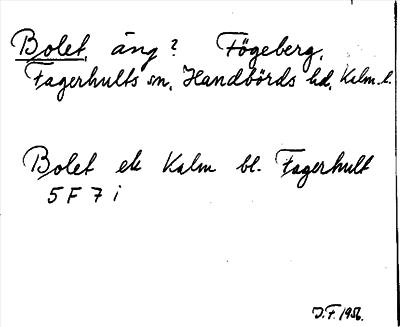 Bolet, äng? Fögeberg,
Fagerhults sn, Handbörds hd, Kalm. l.
Bolet ek Kalm bl. Fagerhult
5 F 7 i
J.F. 1956.